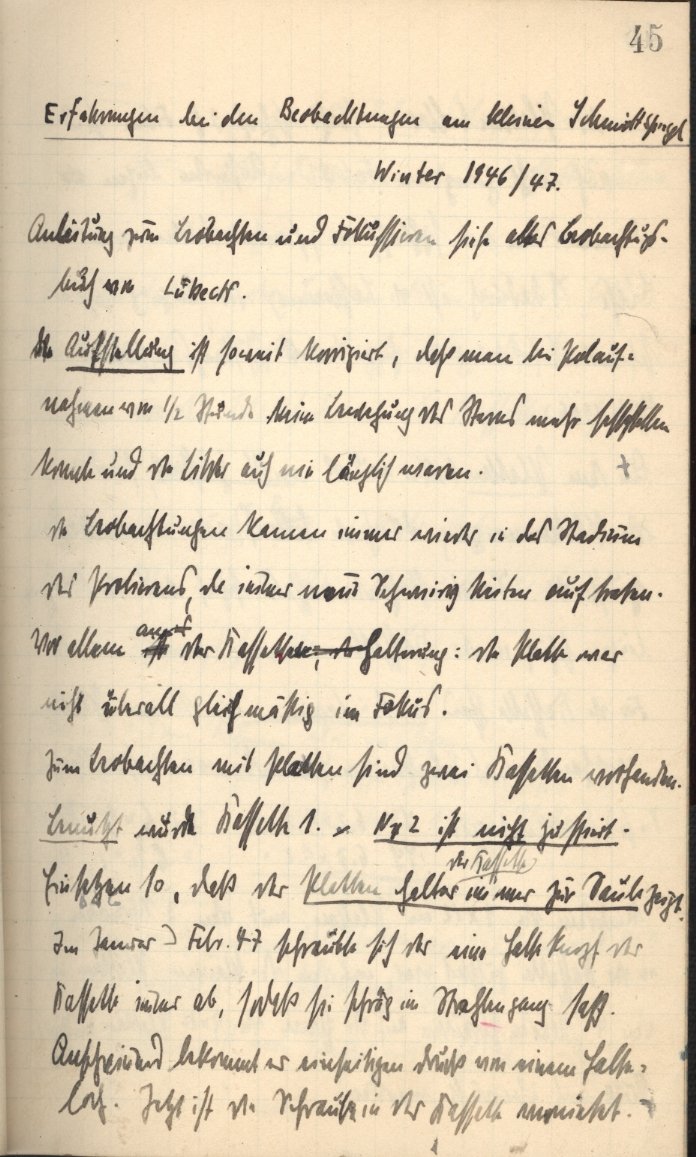 45
Erfahrungen bei den Beobachtungen am kleinen Schmidtspiegel
Winter 1946/47.
Anleitung zum Beobachten und Fokussieren siehe altes Beobachtungs-
buch von Lübeck.
Die Aufstellung ist soweit korrigiert, daß man bei Polauf-
nahmen von 1/2 Stunde keine Bewegung des Sterns mehr feststellen
konnte und die Bilder auch nie länglich waren.
Die Beobachtungen kamen immer wieder in das Stadium
des Probierens, da immer neue Schwierigkeiten auftraten.
Vor allem an der Kassettenhalterung: die Platte war
nicht überall gleichmäßig im Fokus.
Zum Beobachten mit Platten sind zwei Kassetten vorhanden.
Benutzt wurde Kassette 1. – Nr 2 ist nicht justiert.
der Kassette
Einsetzen so, daß der Plattenhalter immer zur Säule zeigt.
Im Januar Febr. 47 schraubte sich der eine Halteknopf der
Kassette immer ab, sodaß sie schräg im Strahlengang saß.
Anscheinend bekommt er einseitigen Druck von einem Halte-
loch. Jetzt ist die Schraube in der Kassette vernietet.